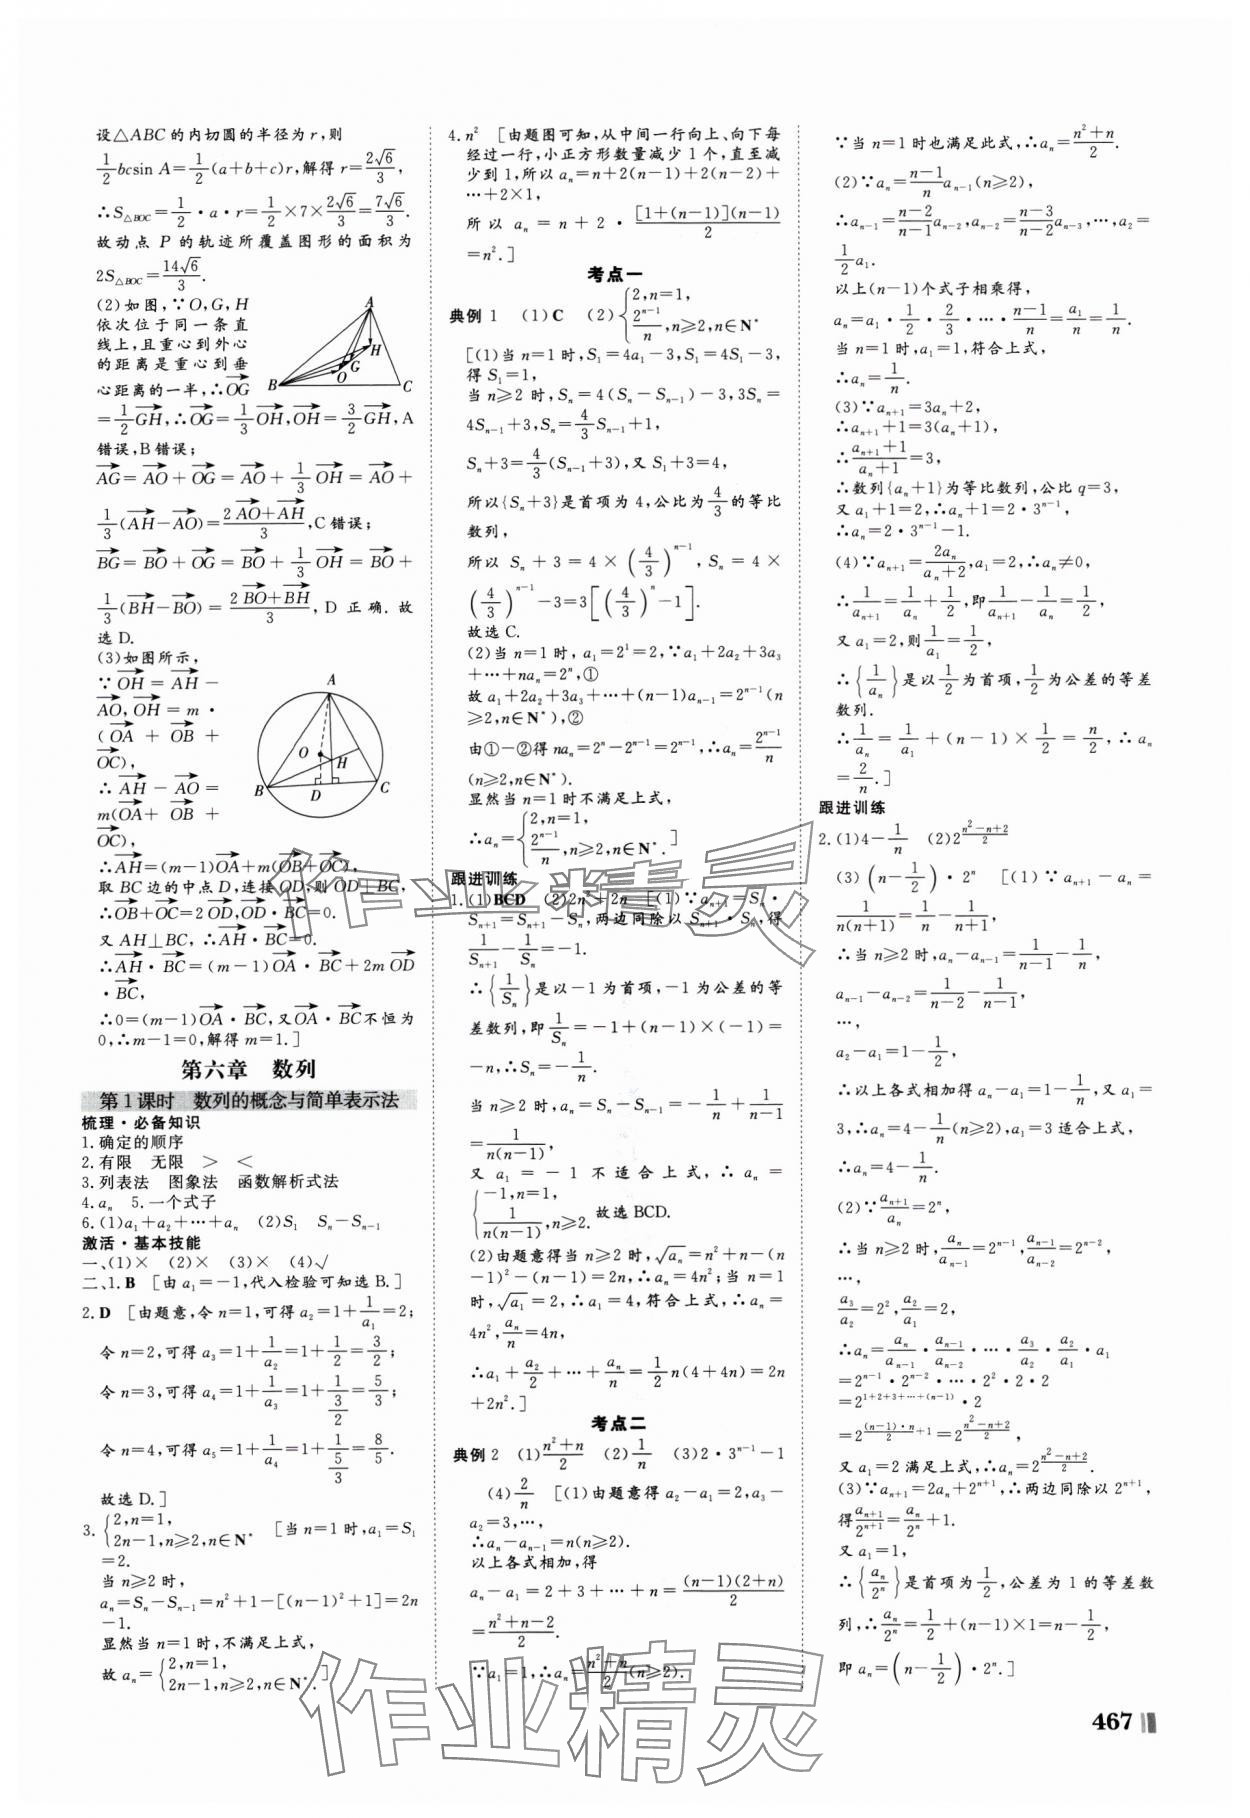 设△ABC的内切圆的半径为r,则
1/2 bcsin A=1/2(a+b+c)r,解得r=2√6/3,
∴S△BOC=1/2·a·r=1/2×7×2√6/3=7√6/3.
故动点 P 的轨迹所覆盖图形的面积为
2S△BOC=14√6/3.
(2)如图,∵O,G,H
依次位于同一条直
线上,且重心到外心
的距离是重心到垂
心距离的一半,∴OG→
=1/2 GH→,∴OG→=1/3 OH→,OH→=3/2 GH→,A
错误,B错误;
AG→=AO→+OG→=AO→+1/3 OH→=AO→+
1/3(AH→-AO→)=(2AO→+AH→)/3,C错误;
BG→=BO→+OG→=BO→+1/3 OH→=BO→+
1/3(BH→-BO→)=(2BO→+BH→)/3,D 正确. 故
选D.
(3)如图所示,
∵OH→=AH→-
AO→,OH→=m·
(OA→+OB→+
OC→),
∴AH→-AO→=
m(OA→+OB→+
OC→),
∴AH→=(m-1)OA→+m(OB→+OC→),
取BC边的中点D,连接OD,则OD⊥BC,
∴OB→+OC→=2OD→,OD→·BC→=0.
又AH⊥BC,∴AH→·BC→=0.
∴AH→·BC→=(m-1)OA→·BC→+2m OD→
·BC→,
∴0=(m-1)OA→·BC→,又OA→·BC→不恒为
0,∴m-1=0,解得m=1.]
第六章 数列
第1课时 数列的概念与简单表示法
梳理·必备知识
1.确定的顺序
2.有限 无限 > <
3.列表法 图象法 函数解析式法
4.aₙ 5.一个式子
6.(1)a₁+a₂+…+aₙ (2)S₁ Sₙ-Sₙ₋₁
激活·基本技能
一、(1)× (2)× (3)× (4)√
二、1.B [由a₁=-1,代入检验可知选B.]
2.D [由题意,令n=1,可得a₂=1+1/a₁=2;
令n=2,可得a₃=1+1/a₂=1+1/2=3/2;
令n=3,可得a₄=1+1/a₃=1+1/(3/2)=5/3;
令n=4,可得a₅=1+1/a₄=1+1/(5/3)=8/5.
故选D.]
3.{2,n=1, 2n-1,n≥2,n∈N* [当n=1时,a₁=S₁
=2.
当n≥2时,
aₙ=Sₙ-Sₙ₋₁=n²+1-[(n-1)²+1]=2n
-1.
显然当n=1时,不满足上式,
故aₙ={2,n=1, 2n-1,n≥2,n∈N*.]
4.n² [由题图可知,从中间一行向上、向下每
经过一行,小正方形数量减少1个,直至减
少到1,所以aₙ=n+2(n-1)+2(n-2)+
…+2×1,
所以 aₙ=n+2·[1+(n-1)](n-1)/2
=n².]
考点一
典例1 (1)C (2){2,n=1, 2ⁿ⁻¹/n,n≥2,n∈N*
[(1)当n=1时,S₁=4a₁-3,S₁=4S₁-3,
得S₁=1,
当n≥2时,Sₙ=4(Sₙ-Sₙ₋₁)-3,3Sₙ=
4Sₙ₋₁+3,Sₙ=4/3 Sₙ₋₁+1,
Sₙ+3=4/3(Sₙ₋₁+3),又S₁+3=4,
所以{Sₙ+3}是首项为4,公比为4/3的等比
数列,
所以 Sₙ+3=4×(4/3)ⁿ⁻¹,Sₙ=4×
(4/3)ⁿ⁻¹-3=3[(4/3)ⁿ-1].
故选C.
(2)当n=1时,a₁=2¹=2,∵a₁+2a₂+3a₃
+…+naₙ=2ⁿ,①
故a₁+2a₂+3a₃+…+(n-1)aₙ₋₁=2ⁿ⁻¹(n
≥2,n∈N*),②
由①-②得naₙ=2ⁿ-2ⁿ⁻¹=2ⁿ⁻¹,∴aₙ=2ⁿ⁻¹/n
(n≥2,n∈N*).
显然当n=1时不满足上式,
∴aₙ={2,n=1, 2ⁿ⁻¹/n,n≥2,n∈N*.]
跟进训练
1.(1)BCD (2)2n²+2n [(1)∵aₙ₊₁=Sₙ·
Sₙ₊₁=Sₙ₊₁-Sₙ,两边同除以Sₙ₊₁·Sₙ,得
1/Sₙ₊₁-1/Sₙ=-1.
∴{1/Sₙ}是以-1为首项,-1为公差的等
差数列,即1/Sₙ=-1+(n-1)×(-1)=
-n,∴Sₙ=-1/n.
当n≥2时,aₙ=Sₙ-Sₙ₋₁=-1/n+1/(n-1)
=1/(n(n-1)),
又 a₁=-1 不适合上式,∴aₙ=
{-1,n=1, 1/(n(n-1)),n≥2. 故选BCD.
(2)由题意得当n≥2时,√aₙ=n²+n-(n
-1)²-(n-1)=2n,∴aₙ=4n²;当n=1
时,√a₁=2,∴a₁=4,符合上式,∴aₙ=
4n²,aₙ/n=4n,
∴a₁+a₂/2+…+aₙ/n=1/2 n(4+4n)=2n
+2n².]
考点二
典例2 (1)(n²+n)/2 (2)1/n (3)2·3ⁿ⁻¹-1
(4)2/n [(1)由题意得a₂-a₁=2,a₃-
a₂=3,…,
∴aₙ-aₙ₋₁=n(n≥2).
以上各式相加,得
aₙ-a₁=2+3+…+n=(n-1)(2+n)/2
=(n²+n-2)/2.
∵a₁=1,∴aₙ=(n²+n)/2(n≥2).
∵当n=1时也满足此式,∴aₙ=(n²+n)/2.
(2)∵aₙ=(n-1)/n aₙ₋₁(n≥2),
∴aₙ₋₁=(n-2)/(n-1) aₙ₋₂,aₙ₋₂=(n-3)/(n-2) aₙ₋₃,…,a₂=
1/2 a₁.
以上(n-1)个式子相乘得,
aₙ=a₁·1/2·2/3·…·(n-1)/n=a₁/n=1/n.
当n=1时,a₁=1,符合上式,
∴aₙ=1/n.
(3)∵aₙ₊₁=3aₙ+2,
∴aₙ₊₁+1=3(aₙ+1),
∴(aₙ₊₁+1)/(aₙ+1)=3,
∴数列{aₙ+1}为等比数列,公比q=3,
又a₁+1=2,∴aₙ+1=2·3ⁿ⁻¹,
∴aₙ=2·3ⁿ⁻¹-1.
(4)∵aₙ₊₁=2aₙ/(aₙ+2),a₁=2,∴aₙ≠0,
∴1/aₙ₊₁=1/aₙ+1/2,即1/aₙ₊₁-1/aₙ=1/2,
又a₁=2,则1/a₁=1/2,
∴{1/aₙ}是以1/2为首项,1/2为公差的等差
数列.
∴1/aₙ=1/a₁+(n-1)×1/2=n/2,∴aₙ
=2/n.]
跟进训练
2.(1)4-1/n (2)2^((n²-n+2)/2)
(3)(n-1/2)·2ⁿ [(1)∵aₙ₊₁-aₙ=
1/(n(n+1))=1/n-1/(n+1),
∴当n≥2时,aₙ-aₙ₋₁=1/(n-1)-1/n,
aₙ₋₁-aₙ₋₂=1/(n-2)-1/(n-1),
…,
a₂-a₁=1-1/2,
∴以上各式相加得aₙ-a₁=1-1/n,又a₁=
3,∴aₙ=4-1/n(n≥2),a₁=3适合上式,
∴aₙ=4-1/n.
(2)∵aₙ₊₁/aₙ=2ⁿ,
∴当n≥2时,aₙ/aₙ₋₁=2ⁿ⁻¹,aₙ₋₁/aₙ₋₂=2ⁿ⁻²
…,
a₃/a₂=2²,a₂/a₁=2,
∴aₙ=aₙ/aₙ₋₁·aₙ₋₁/aₙ₋₂·…·a₃/a₂·a₂/a₁·a₁
=2ⁿ⁻¹·2ⁿ⁻²·…·2²·2·2
=2^(1+2+3+…+(n-1))·2
=2^((n-1)·n/2+1)=2^((n²-n+2)/2),
又a₁=2满足上式,∴aₙ=2^((n²-n+2)/2).
(3)∵aₙ₊₁=2aₙ+2ⁿ⁺¹,∴两边同除以2ⁿ⁺¹,
得aₙ₊₁/2ⁿ⁺¹=aₙ/2ⁿ+1.
又a₁=1,
∴{aₙ/2ⁿ}是首项为1/2,公差为1的等差数
列,∴aₙ/2ⁿ=1/2+(n-1)×1=n-1/2,
即aₙ=(n-1/2)·2ⁿ.]
467
作业精灵
作业精灵
A
H
G
O
B
C
A
O
H
B
D
C